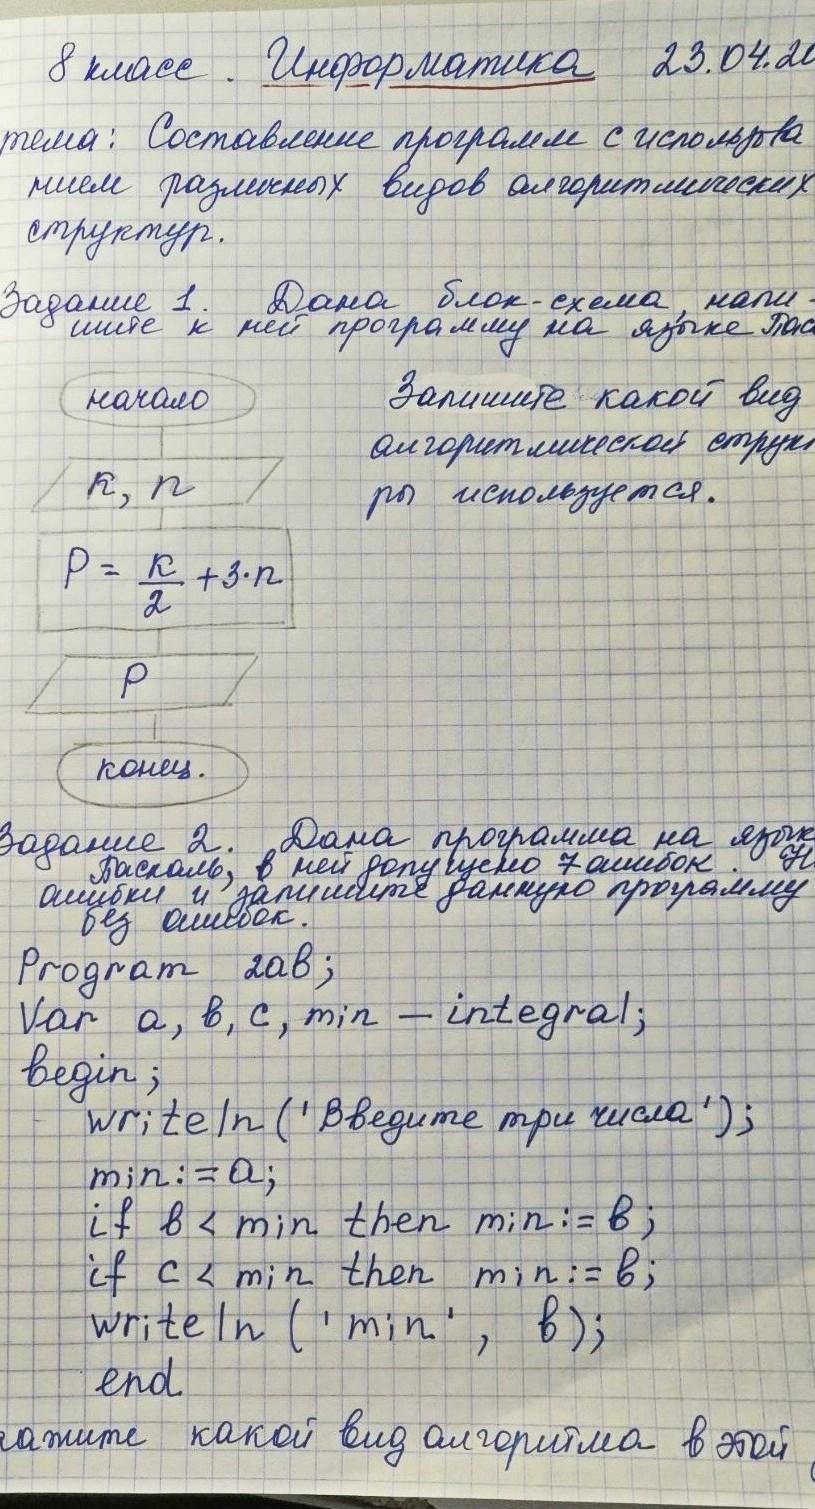 8 класс. Информатика 23.04.20
тема: Составление программ с использова
нием различных видов алгоритмических
структур.
Задание 1. Дана блок-схема, напи-
шите к ней программу на языке Пас
начало
к, n
P = к/2 + 3·n
P
конец.
Запишите какой вид
алгоритмической структ
ры используется.
Задание 2. Дана программа на язык
Паскаль, в ней допущено 7 ошибок.
ошибки и запишите данную программу
без ошибок.
Program 2ab;
Var a, b, c, min — integral;
begin;
writeln('Введите три числа');
min:=a;
if b < min then min:=b;
if c < min then min:=b;
writeln ('min', b);
end
кажите какой вид алгоритма в этой